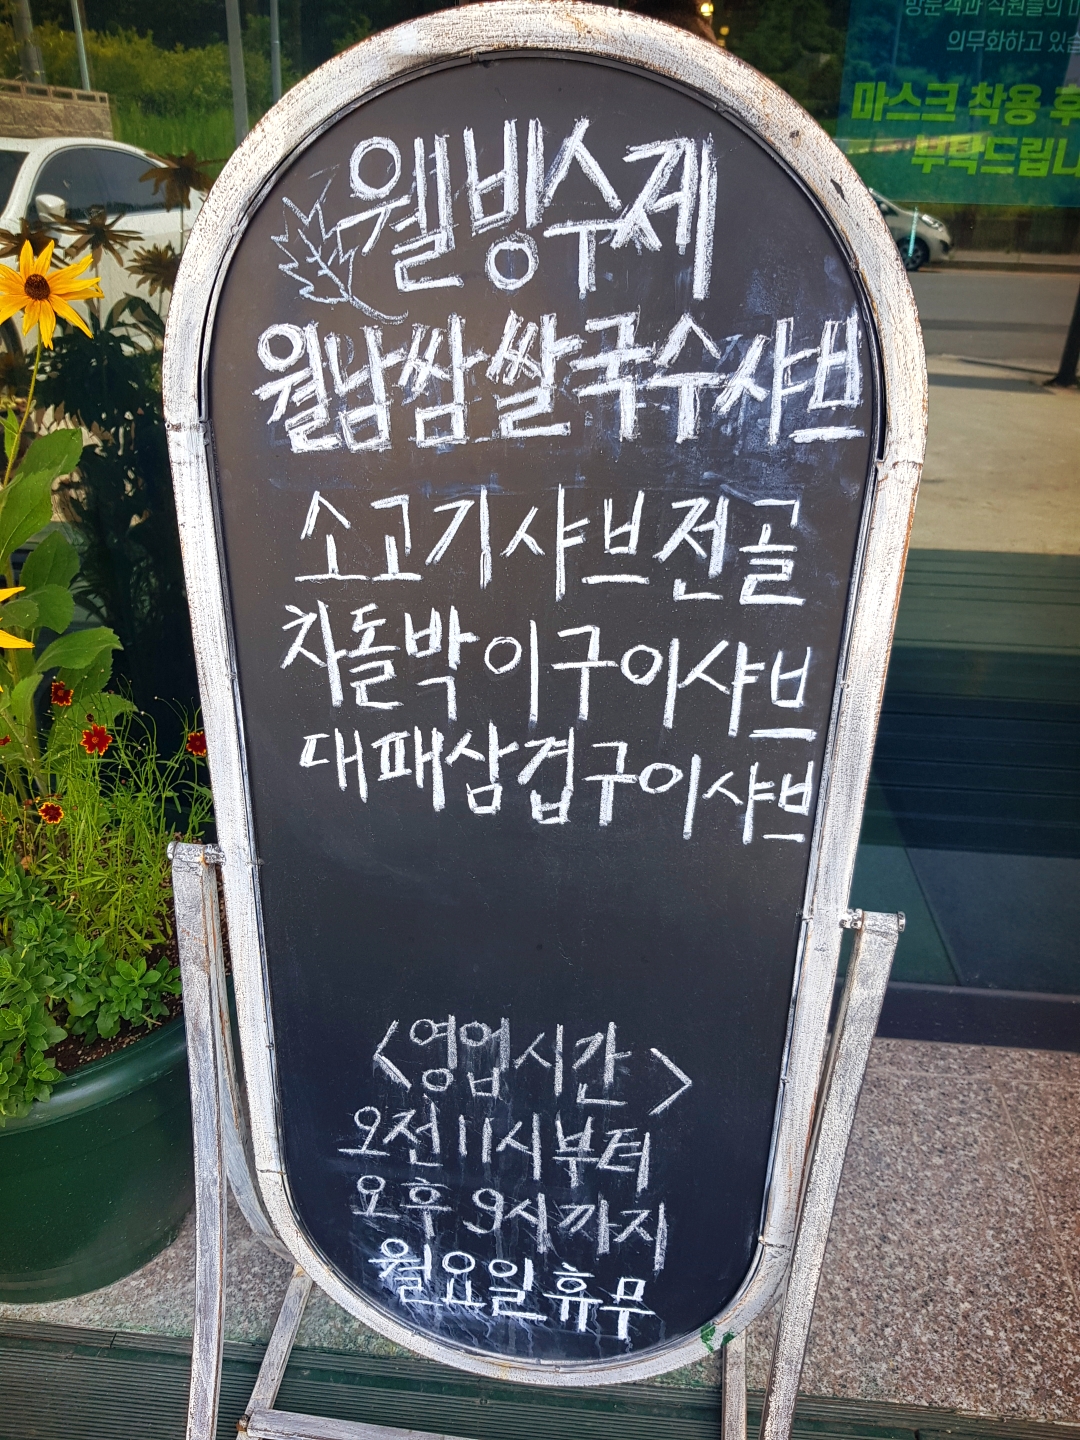 웰빙수제
월남쌈쌀국수샤브
소고기샤브전골
차돌박이구이샤브
대패삼겹구이샤브
<영업시간>
오전11시부터
오후 9시까지
월요일휴무
방문객과 직원들의
의무화하고 있습
마스크 착용 후
부탁드립니